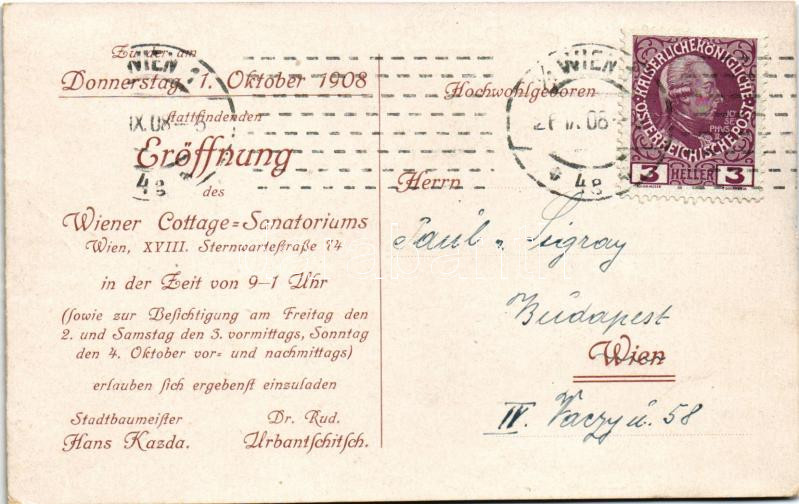 Zu der am
Donnerstag, 1. Oktober 1908
stattfindenden
Eröffnung
des
Wiener Cottage=Sanatoriums
Wien, XVIII. Sternwartestraße 74
in der Zeit von 9–1 Uhr
(sowie zur Besichtigung am Freitag den
2. und Samstag den 3. vormittags, Sonntag
den 4. Oktober vor= und nachmittags)
erlauben sich ergebenst einzuladen
Stadtbaumeister
Hans Kazda.
Dr. Rud.
Urbantschitsch.
WIEN
IX.08
48
WIEN
26 IX 08
48
KAISERLICHEKÖNIGLICHE
OSTERREICHISCHE POST
JOSEPHVS II
3 HELLER 3
Hochwohlgeboren
Herrn
Paul v. Sigray
Budapest
Wien
IV. Vaczy ú. 58